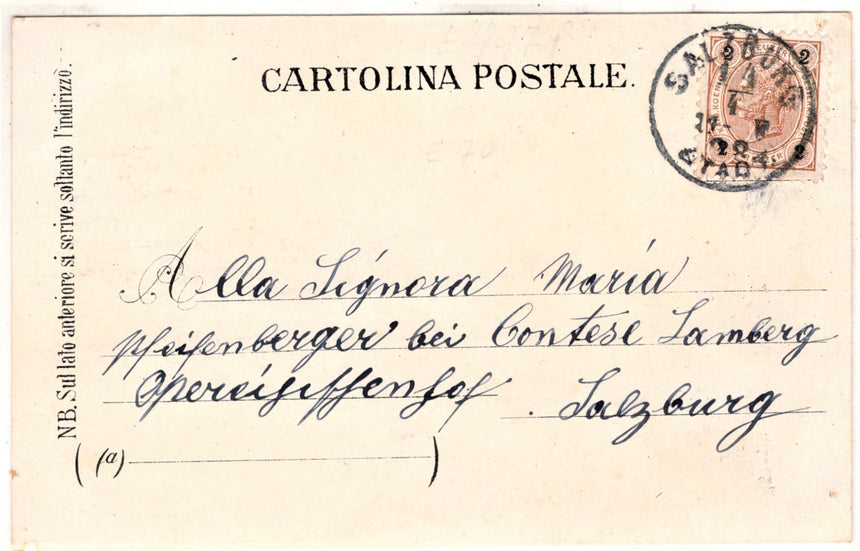 CARTOLINA POSTALE.
SALZBURG
STADT
2 2
2 2
NB. Sul lato anteriore si scrive soltanto l'indirizzo.
Alla Signora Maria
Pfeifenberger bei Contese Lamberg
Salzburg
(a)